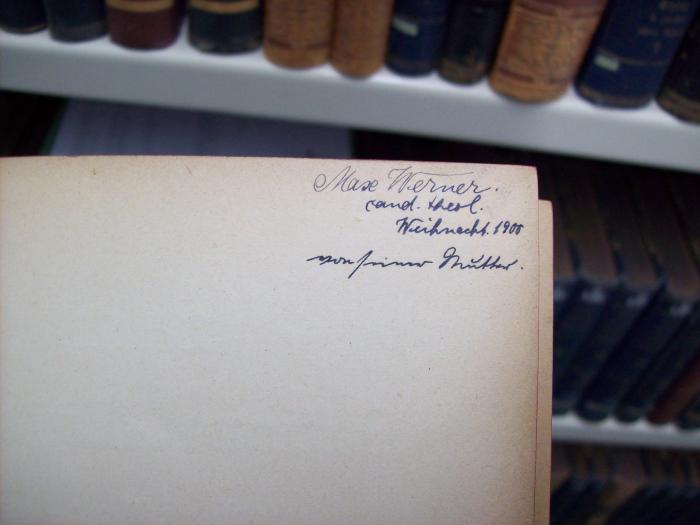 Max Werner.
cand. theol.
Weihnacht. 1900
von seiner Mutter.